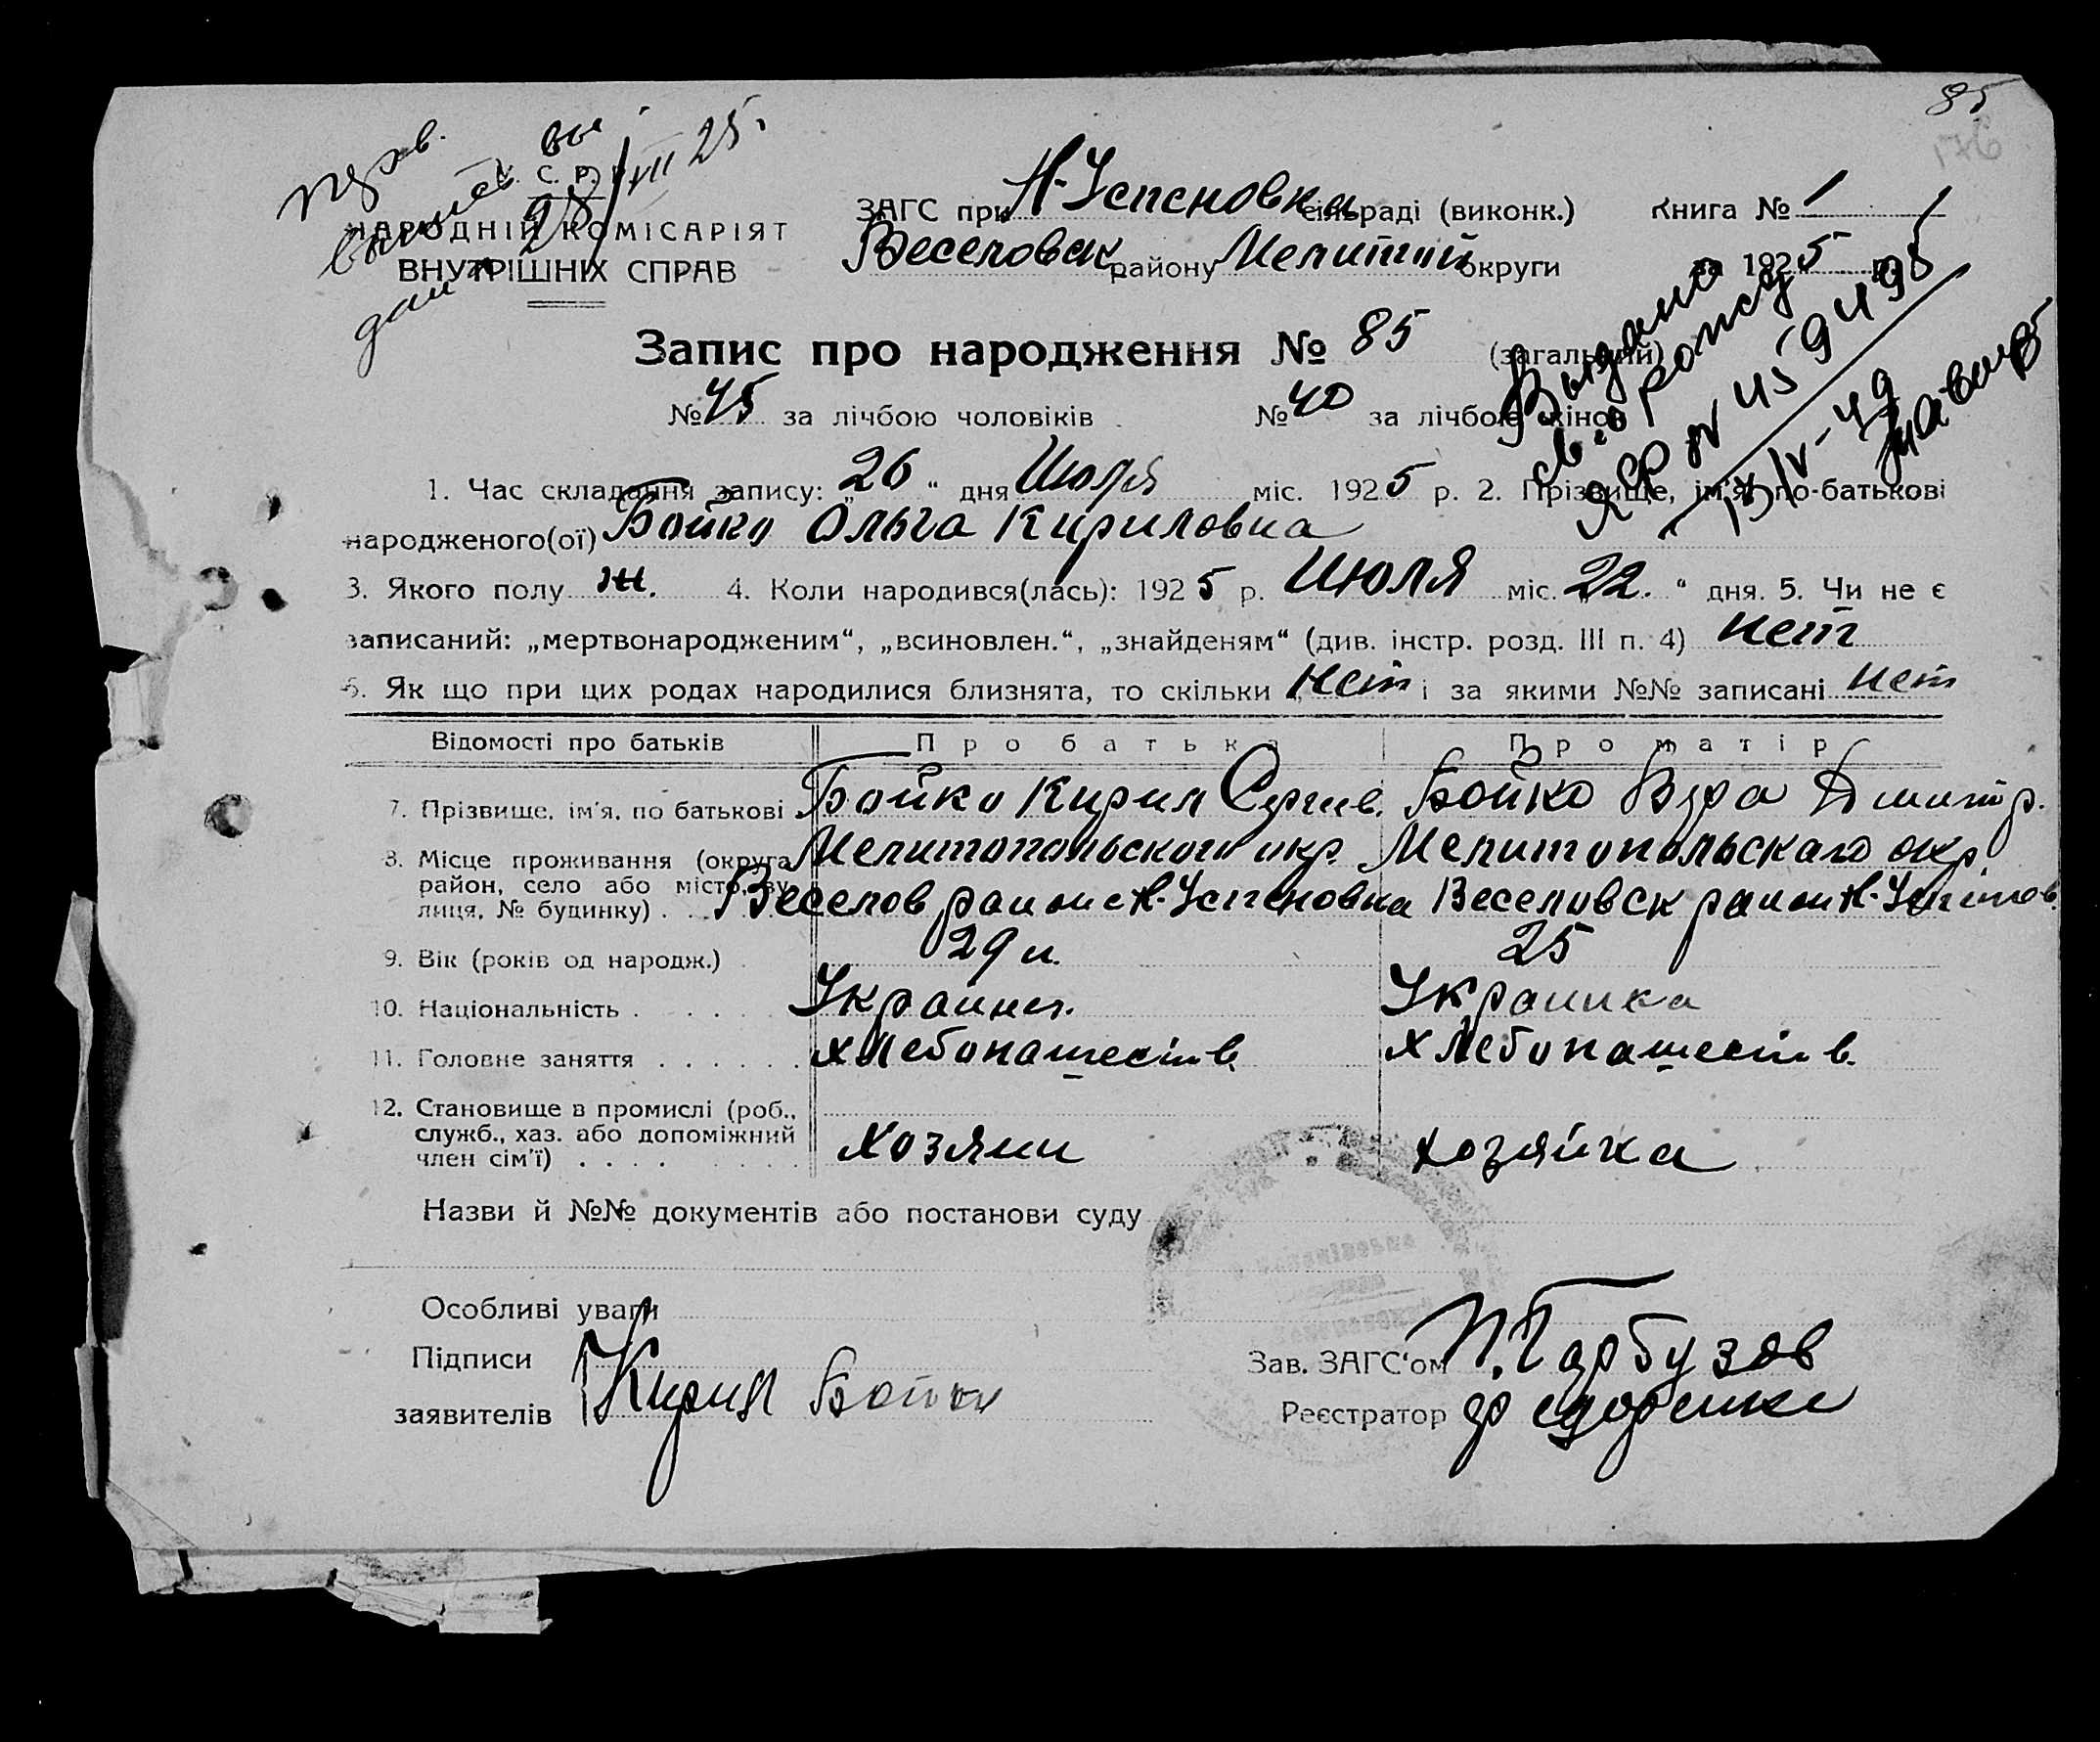 85
176
перв.
выпись вы
дан 28/VII 25.
У. С. Р. Р.
НАРОДНІЙ КОМІСАРІЯТ
ВНУТРІШНІХ СПРАВ
ЗАГС при Н-Успеновка сільраді (виконк.) Книга № 1
Веселовск району Мелитоп округи за 1925 р.
Выдано
св. о рожд
ЯР № 459498
13/IV-49
Запис про народження № 85 (загальний)
№ 45 за лічбою чоловіків № 40 за лічбою жінок
1. Час складання запису: „26“ дня Июля міс. 1925 р. 2. Прізвище, ім'я, по-батькові
народженого(ої) Бойко Ольга Кириловна
3. Якого полу ж. 4. Коли народився(лась): 1925 р. Июля міс. „22.“ дня. 5. Чи не є
записаний: „мертвонародженим“, „всиновлен.“, „знайденям“ (див. інстр. розд. III п. 4) нет
6. Як що при цих родах народилися близнята, то скільки нет і за якими №№ записані нет
Відомості про батьків Про батька Про матір
7. Прізвище, ім'я, по батькові Бойко Кирил Сергиев. Бойко Вера Дмитр.
8. Місце проживання (округа Мелитопольского окр. Мелитопольскаго окр.
район, село або місто, ву- Веселов район с Н-Успеновка Веселовск район Н-Успенов.
лиця, № будинку) . . .
9. Вік (років од народж.) 29 л. 25
10. Національність . . . . Украинец. Украинка
11. Головне заняття . . . . . . хлебопашеств. хлебопашеств.
12. Становище в промислі (роб.,
служб., хаз. або допоміжний хозяин хозяйка
член сім'ї) . . . .
Назви й №№ документів або постанови суду
Особливі уваги
Підписи Зав. ЗАГС'ом П. Гарбузов
заявителів Кирил Бойко Реєстратор Федоренко